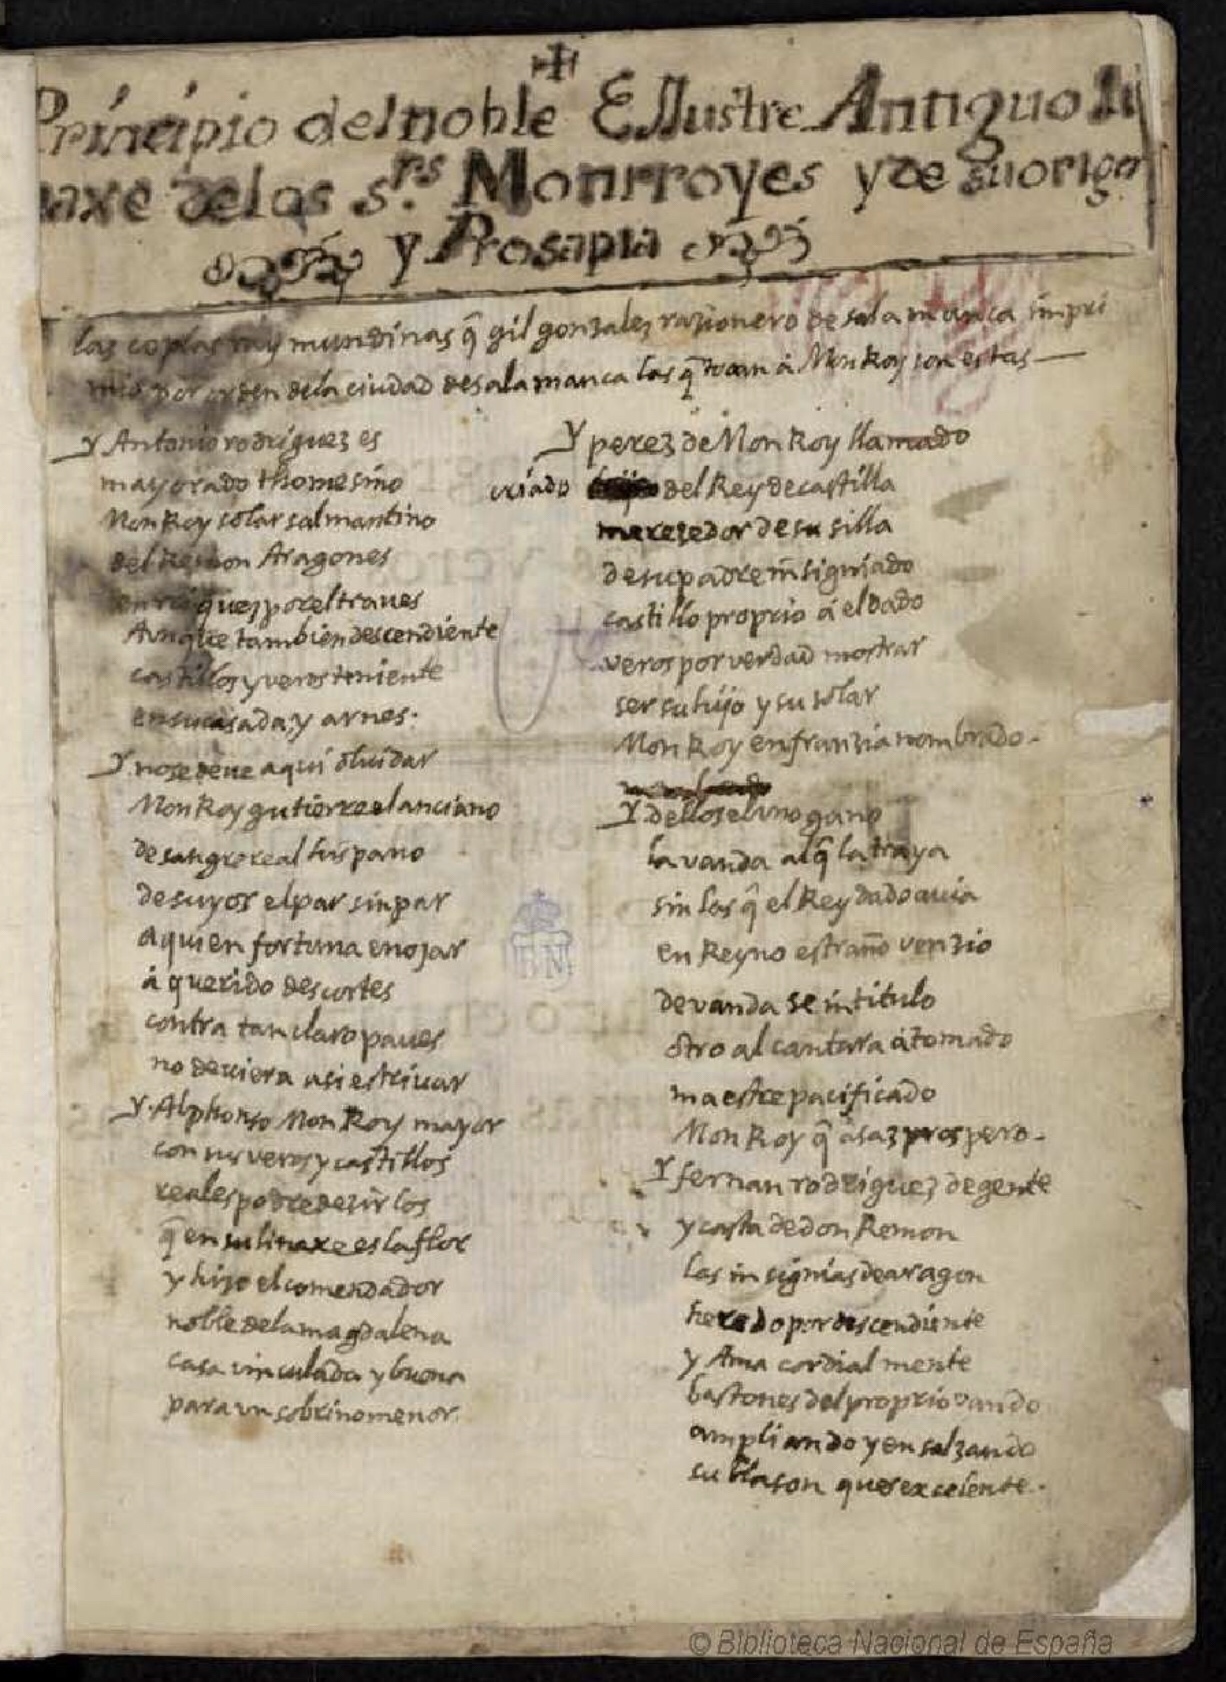 Principio del noble Ellustre Antiguo li
naxe de los s.rs Monrroyes y de su origen
y Prosapia
las coplas raymundinas q̃ gil gonzalez razionero de salamanca impri
mio por orden de la ciudad de salamanca las q̃ tocan á MonRoy son estas
y Antonio rodriguez es
mayorado thomesino
MonRoy solar salmantino
del Remon Aragones
enrriquez por el traves
Aunque tambien descendiente
castillos y veros teniente
en su casada y arnes.
y no se deve aqui oluidar
MonRoy gutierre el anciano
de sangre real hispano
de suyos el par sin par
a quien fortuna enojar
á querido descortes
contra tan claro paues
no deviera asi estrivar
y Alphonso MonRoy mayor
con sus veros y castillos
reales podre dezir los
q̃ en su linaxe es la flor
y hijo el comendador
noble de la magdalena
casa vinculada y buena
para un sobrino menor
y perez de MonRoy llamado
criado del Rey de castilla
merezedor de su silla
de su padre insigniado
castillo proprio á el dado
veros por verdad mostrar
ser su hijo y su solar
MonRoy en franzia nombrado.
y dellos el uno gano
la vanda al q̃ la traya
sin las q̃ el Rey dado avia
en Reyno estraño venzio
de vanda se intitulo
otro alcantara á tomado
maestre pacificado
MonRoy q̃ asaz prospero.
y fernan rodriguez de gente
y casta de don Remon
las insignias de aragon
heredo por descendiente
y Ama cordial mente
bastones del proprio vando
ampliando y ensalzando
su blason ques excelente.
BN
© Biblioteca Nacional de España